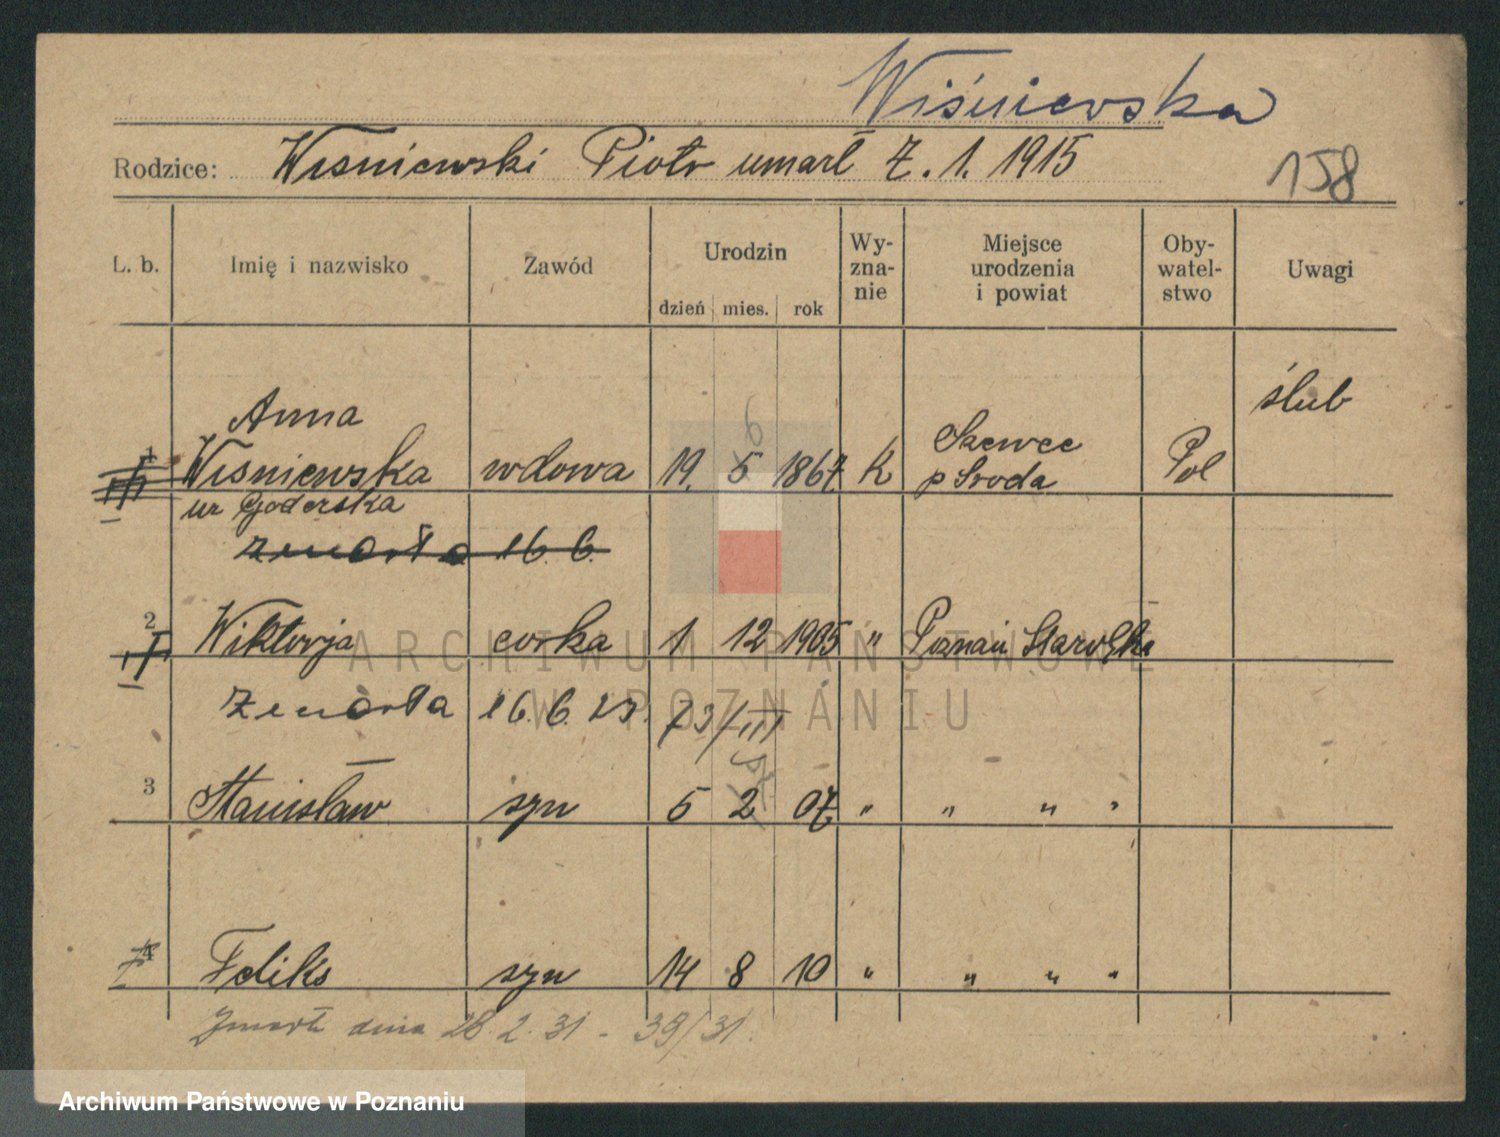 Wiśniewska
Rodzice: Wisniewski Piotr umarł 7. 1. 1915
158
L. b. Imię i nazwisko Zawód Urodzin dzień mies. rok Wy-zna-nie Miejsce urodzenia i powiat Oby-watel-stwo Uwagi
ślub
Anna
1 Wisniewska wdowa 19. 5 6 1867. K Szewce p Sroda Pol
ur Goderska
zmarła 16. 6.
2 Wiktorja corka 1 12 1905 " Poznań Starołęka
zmarła 16. 6. 23. 73/III
3 Stanisław syn 5 2 07 " " " "
4 Feliks syn 14 8 10 " " " "
Zmarł dnia 28. 2. 31 - 39/31.
ARCHIWUM PAŃSTWOWE
W POZNANIU
Archiwum Państwowe w Poznaniu